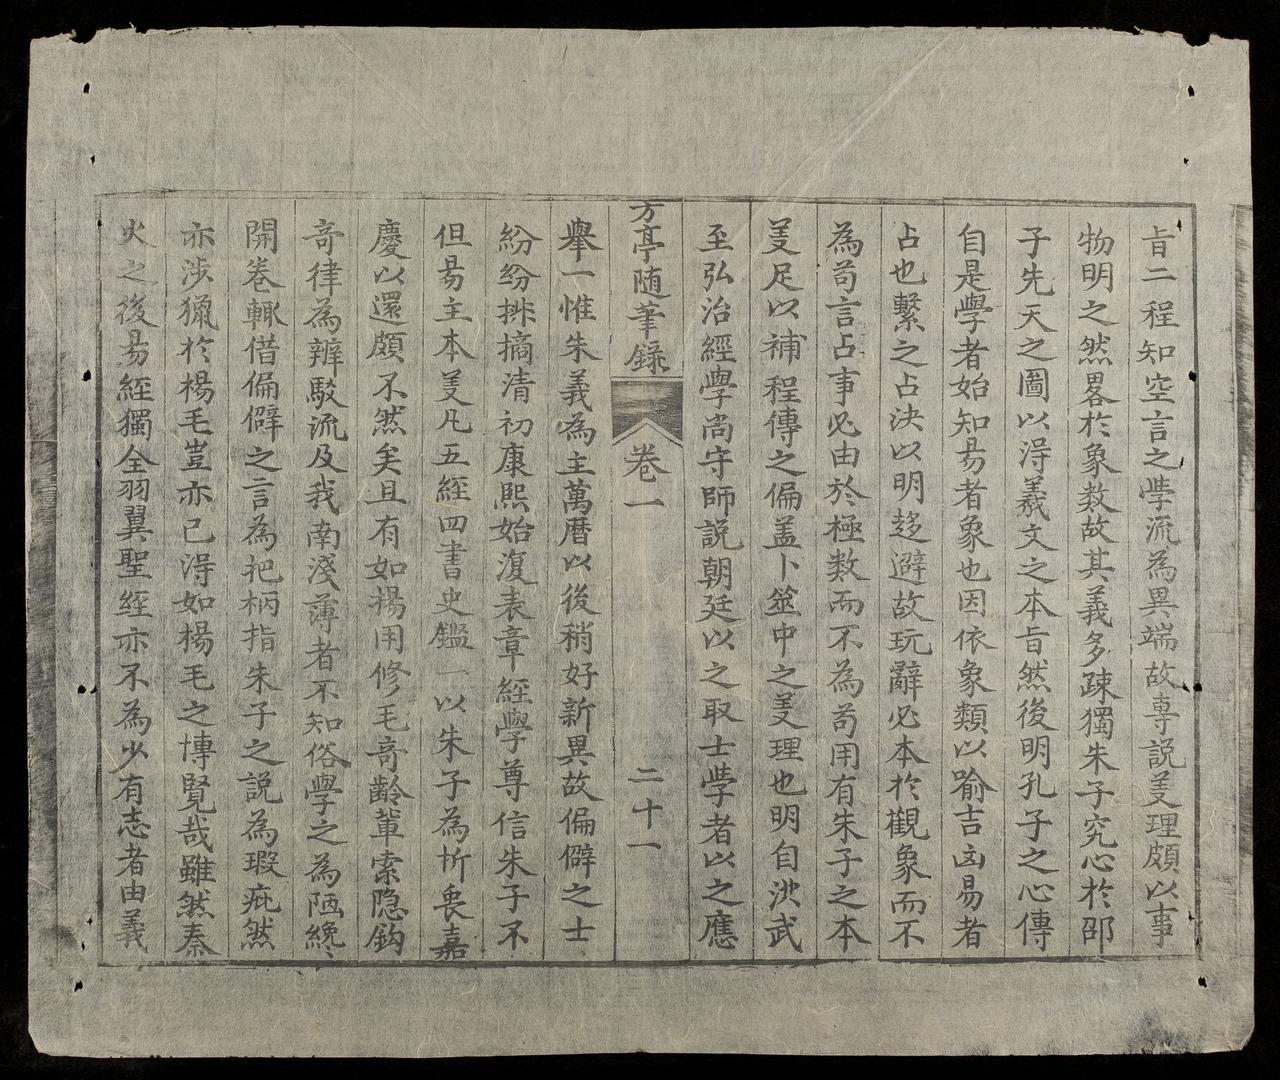 旨二程知空言之學流為異端故專說义理頗以事
物明之然畧於象数故其義多疎獨朱子究心於邵
子先天之圖以淂羲文之本旨然後明孔子之心傳
自是學者始知易者象也因依象類以喻吉凶易者
占也繫之占決以明趍避故玩辭必本於觀象而不
為苟言占事必由於極数而不為苟用有朱子之本
义足以補程傳之偏盖卜筮中之义理也明自洪武
至弘治經學尚守師説朝廷以之取士學者以之應
方亭隨筆錄
卷一
二十一
舉一惟朱義為主萬曆以後稍好新異故偏僻之士
紛紛排摘清初康熙始復表章經學尊信朱子不
但易主本义凡五經四書史鑑一以朱子為折衷嘉
慶以還頗不然矣且有如楊用修毛奇齡輩索隐鈎
奇律為辨駁流及我南淺薄者不知俗學之為陋纔
開卷輙借偏僻之言為把柄指朱子之說為瑕疵然
亦涉獵於楊毛豈亦已淂如楊毛之博覽哉雖然秦
火之後易經獨全羽翼聖經亦不為少有志者由義